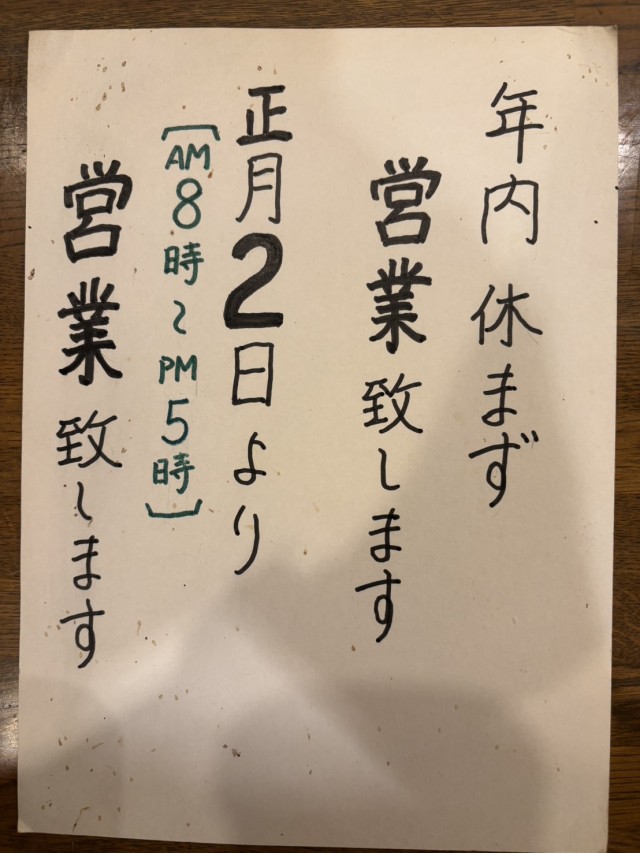 年内休まず
営業致します
正月2日より
[AM8時~PM5時]
営業致します